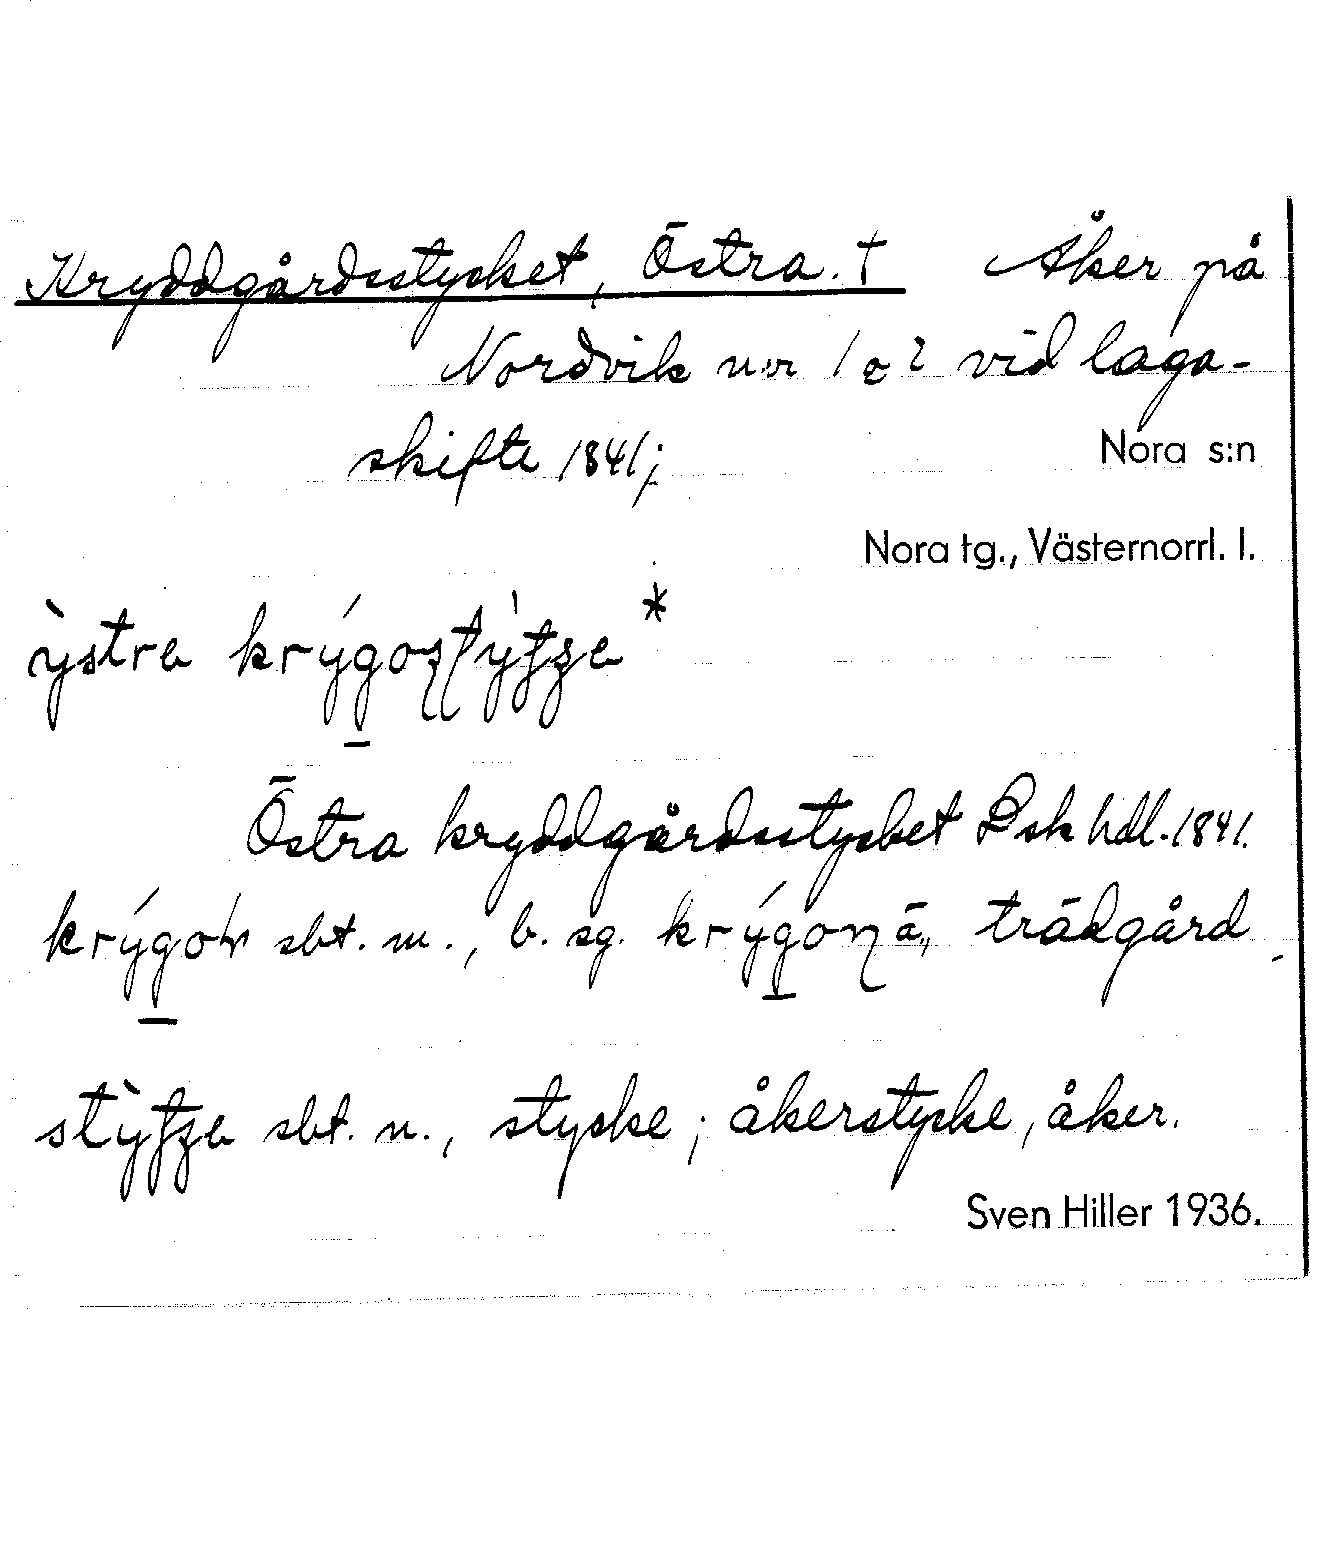 Kryddgårdsstycket, Östra. † Åker på
Nordvik nor 1 o 2 vid laga-
skifte 1841;
Nora s:n
Nora tg., Västernorrl. l.
ỳstra krýgo *
Östra kryddgårdsstycket Lsk hdl. 1841.
krýgor sbt. m., b. sg. trädgård
sbt. n., stycke; åkerstycke, åker.
Sven Hiller 1936.